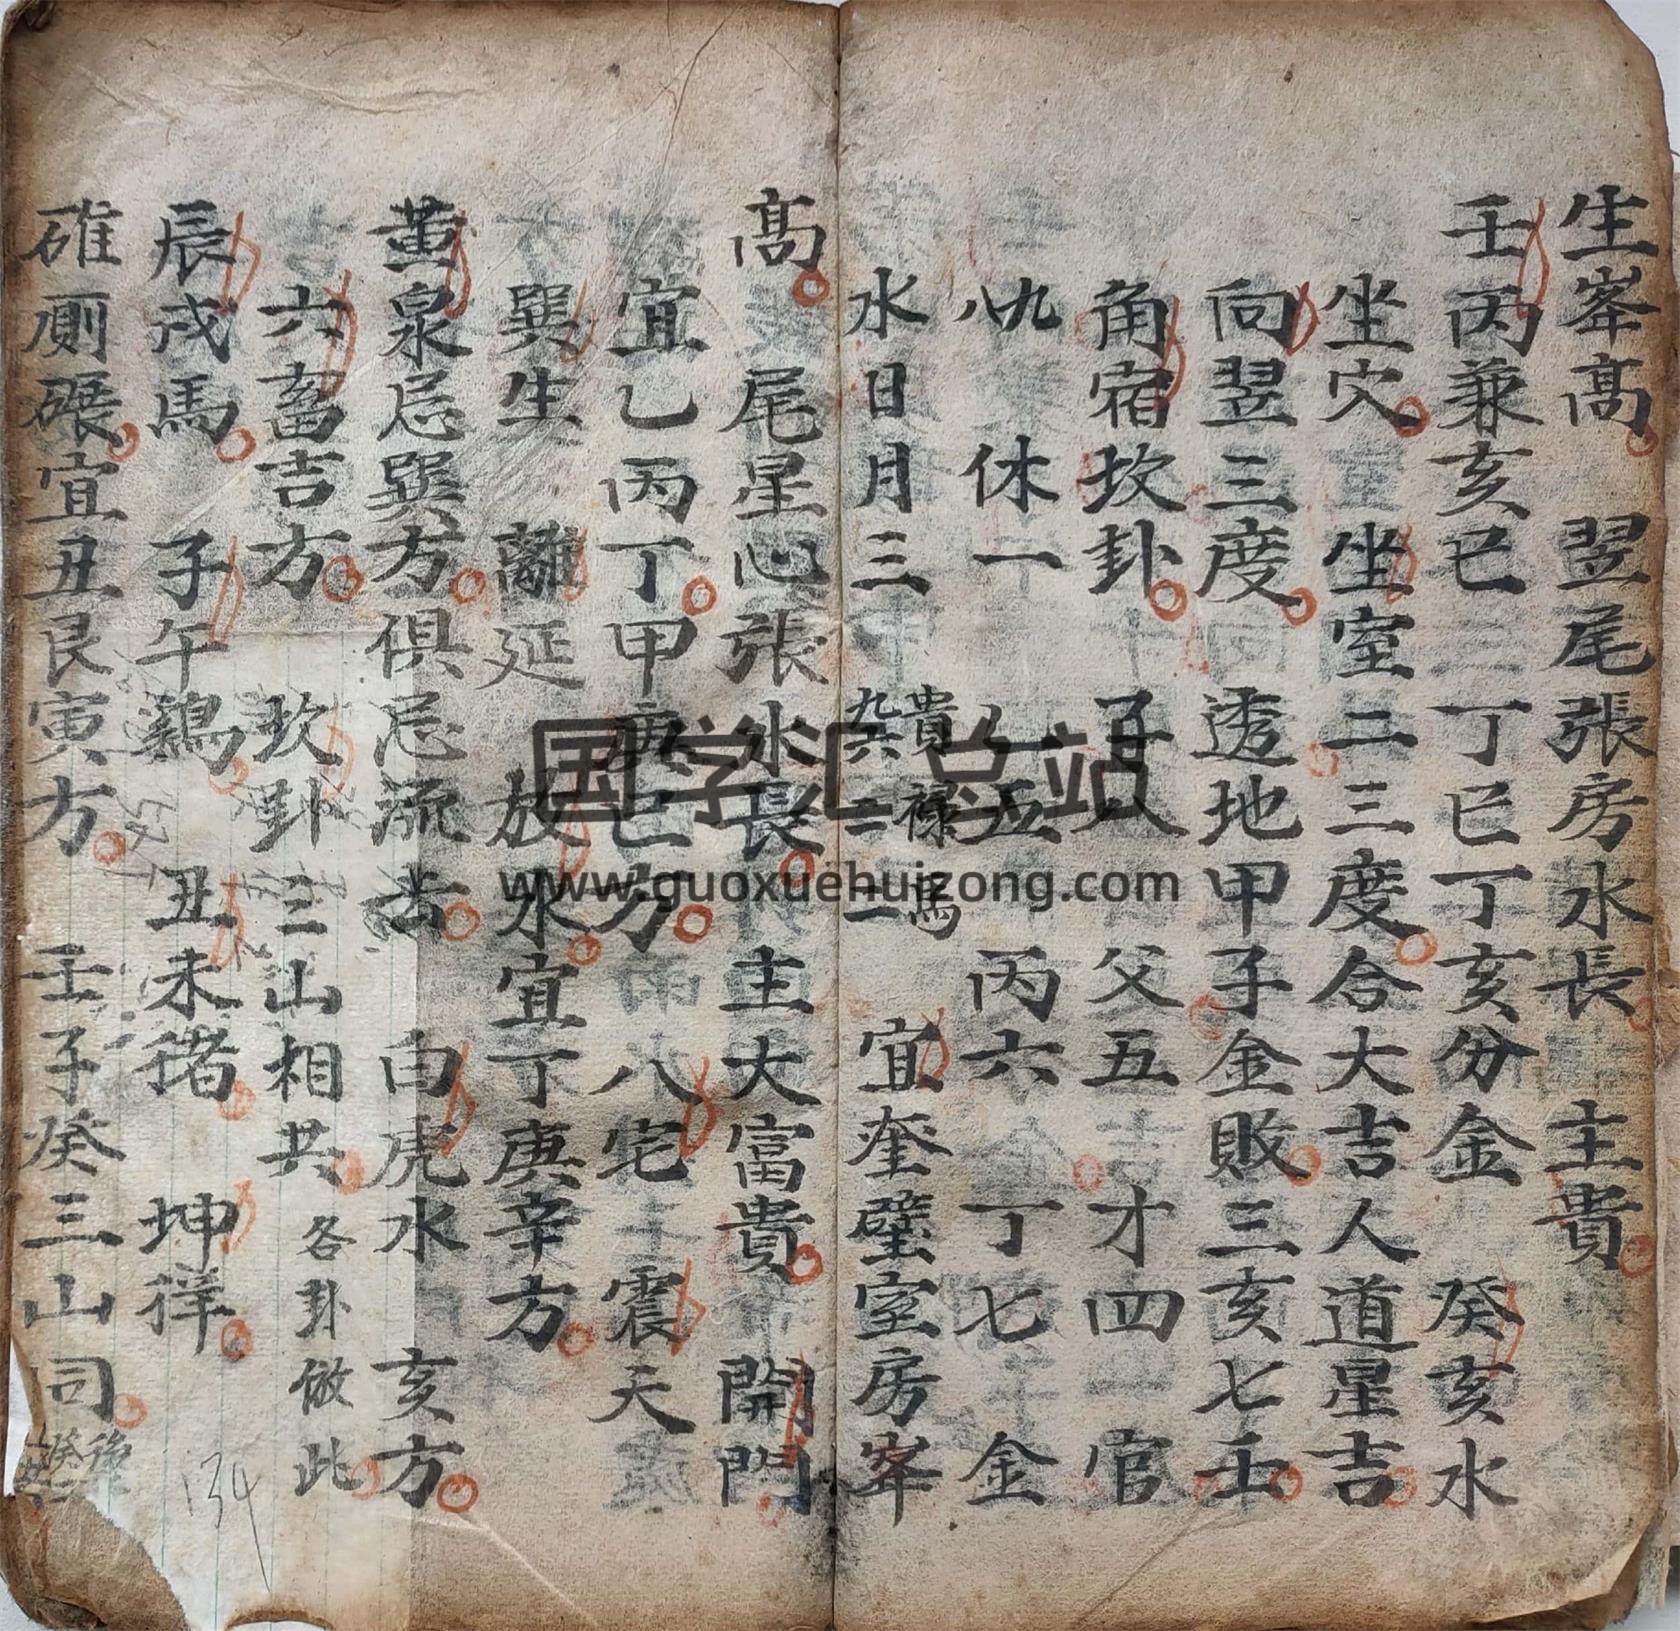 生峯髙 翌尾張房水長 主貴
壬丙兼亥巳 丁巳丁亥分金 癸亥水
坐穴 坐室二三度合大吉人道星吉
向翌三度 透地甲子金敗三亥七壬
角宿坎卦 子八 父五 才四 官
八九 休一 一五 丙六 丁七 金
水日月三 貴 禄 馬 宜奎壁室房峯
髙 尾星心張 水長 主大富貴 開門
宜乙丙丁甲庚巳方 八宅 震天
巽生 離延 放水宜丁庚辛方
黄泉忌巽方俱忌流去 白虎水 亥方
六畜吉方 坎卦三山相共 各卦倣此
辰戌馬 子午鷄 丑未猪 坤徉
碓厠碾宜丑艮寅方 壬子癸三山同
134
国学汇总站
www.guoxuehuizong.com